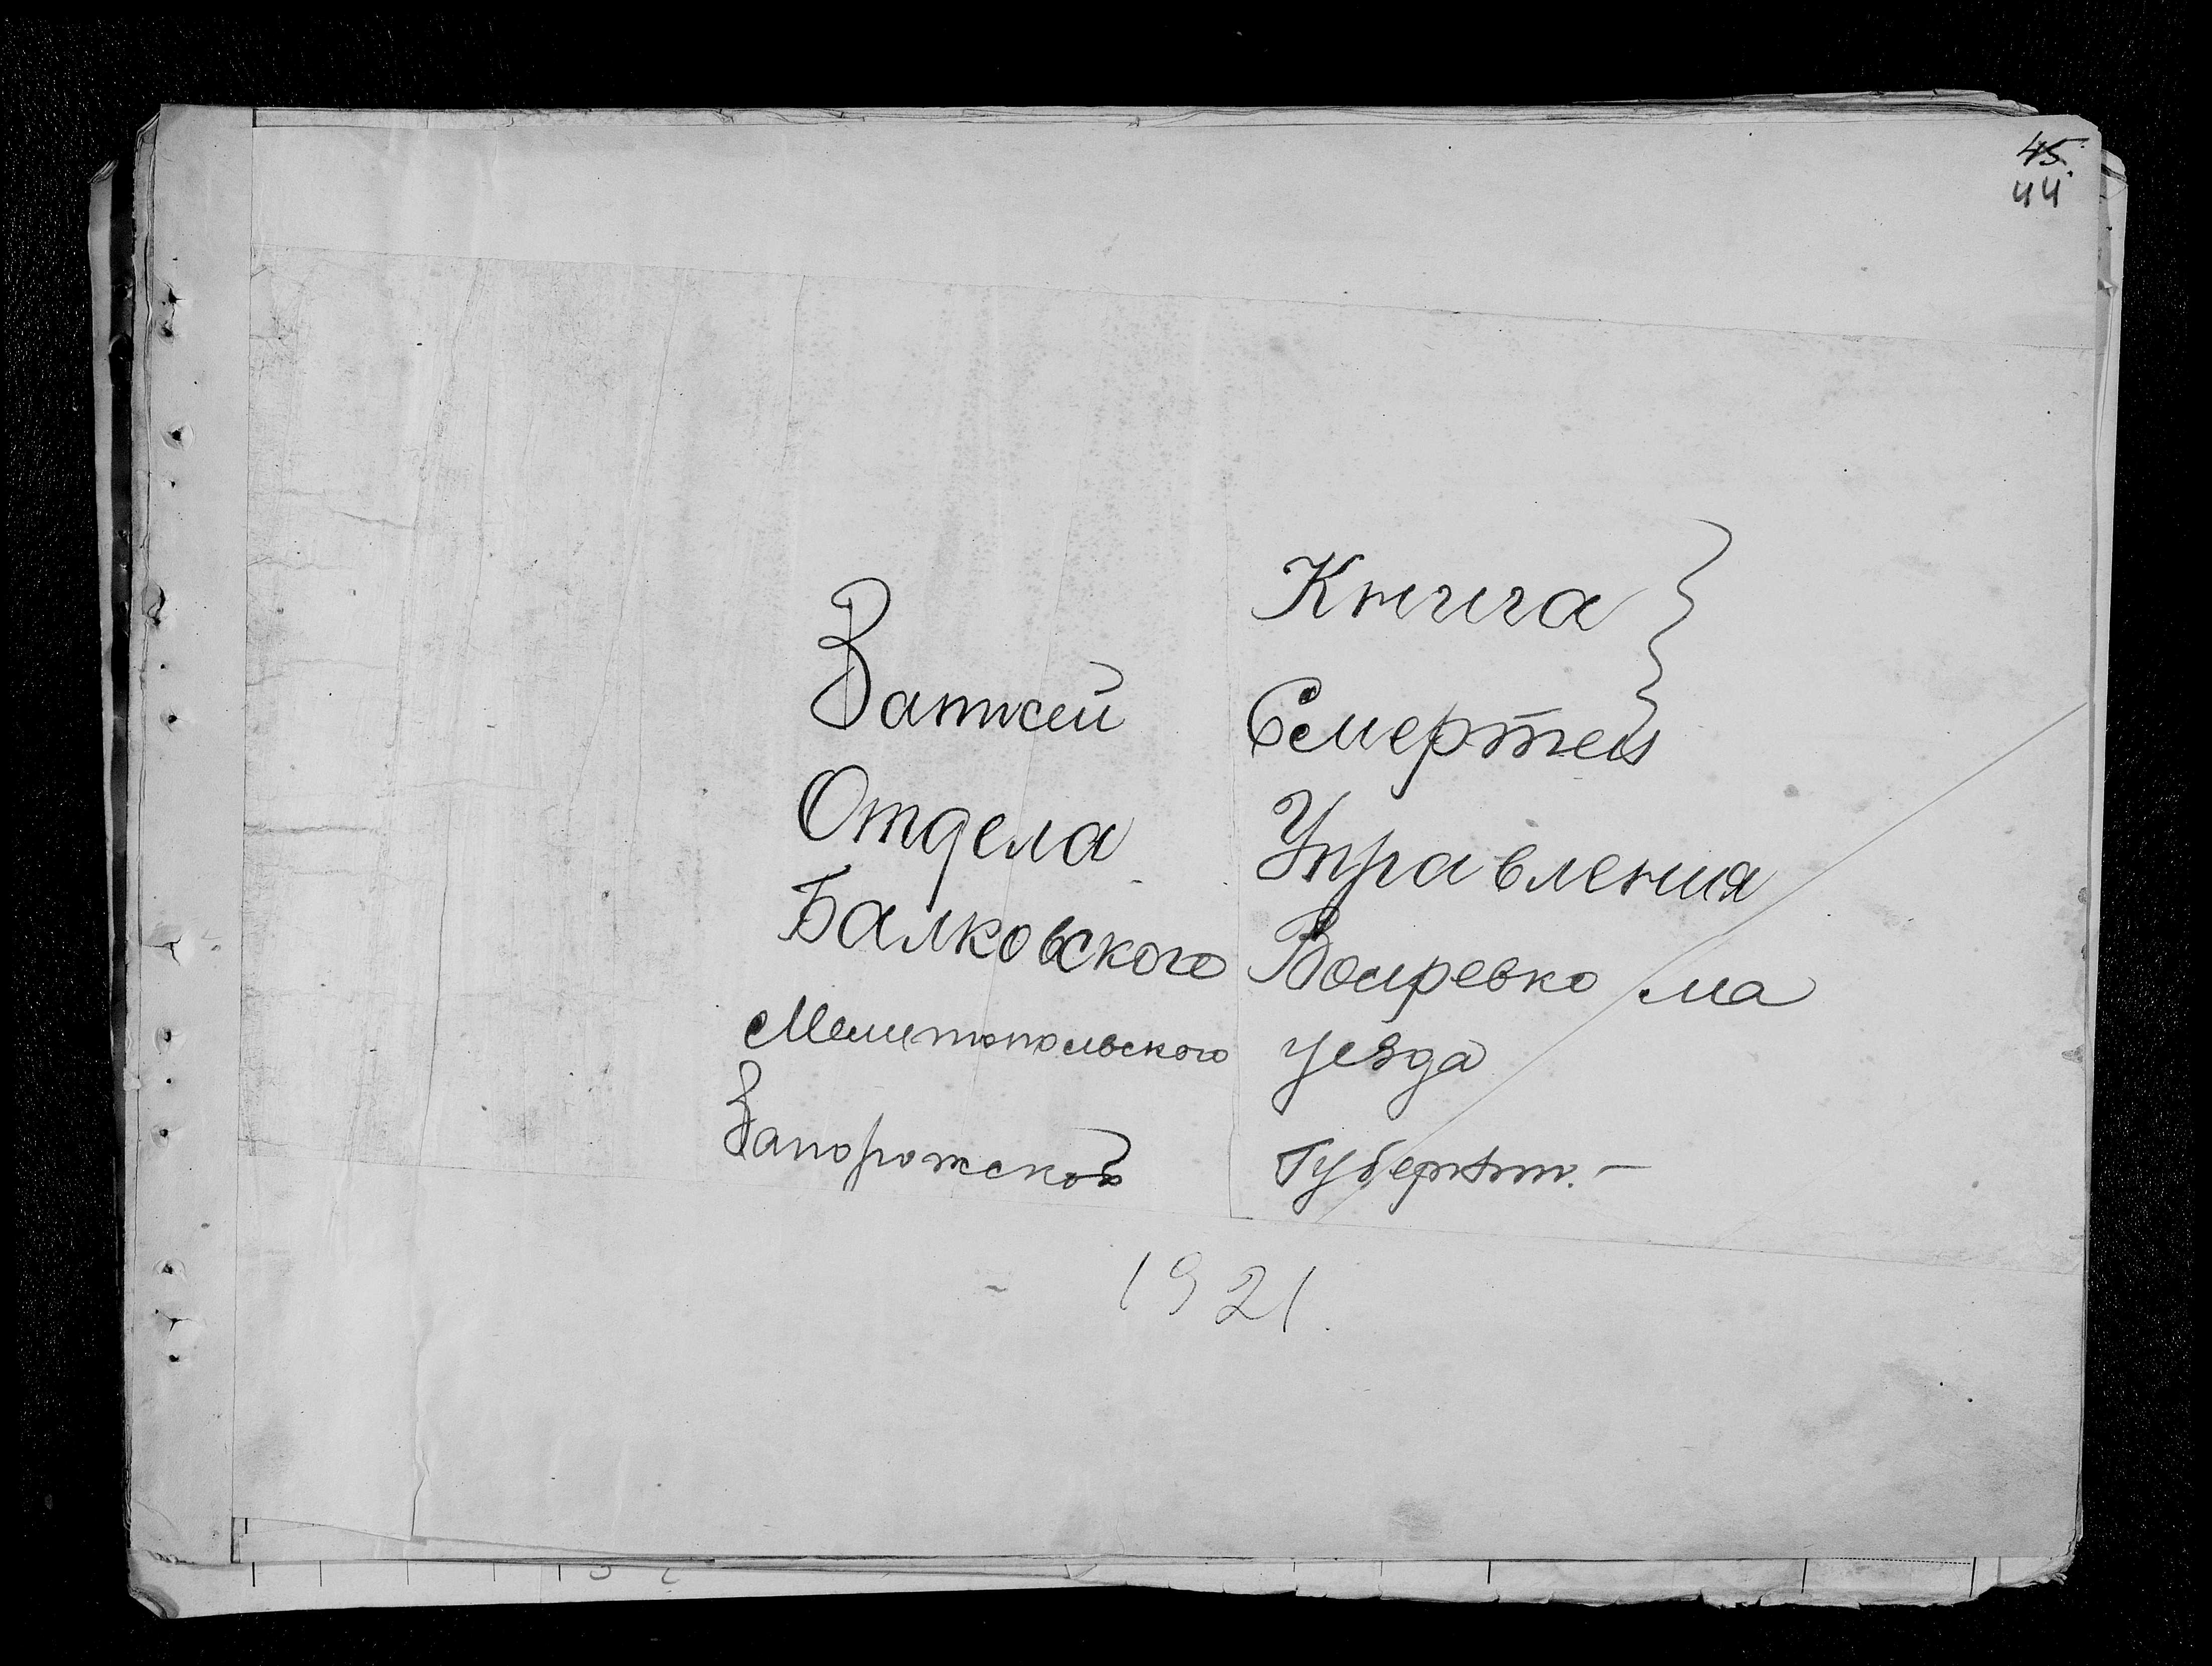 45
44
Книга
Записей Смертей
Отдела Управления
Балковского Волревкома
Мелитопольского уезда
Запорожской Губернии.-
1921.